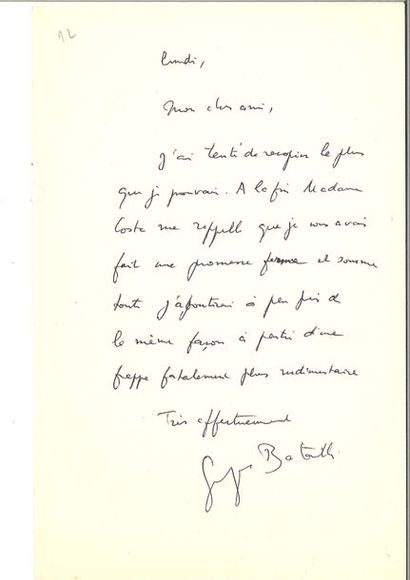 12
lundi,
mon cher ami,
J'ai tenté de recopier le plus
que je pouvais. A la fin Madame
Costa me rappelle que je vous avais
fait une promesse ferme et somme
toute j'ajouterai à peu près de
la même façon à partir d'une
frappe fatalement plus rudimentaire
Très affectueusement
Georges Bataille